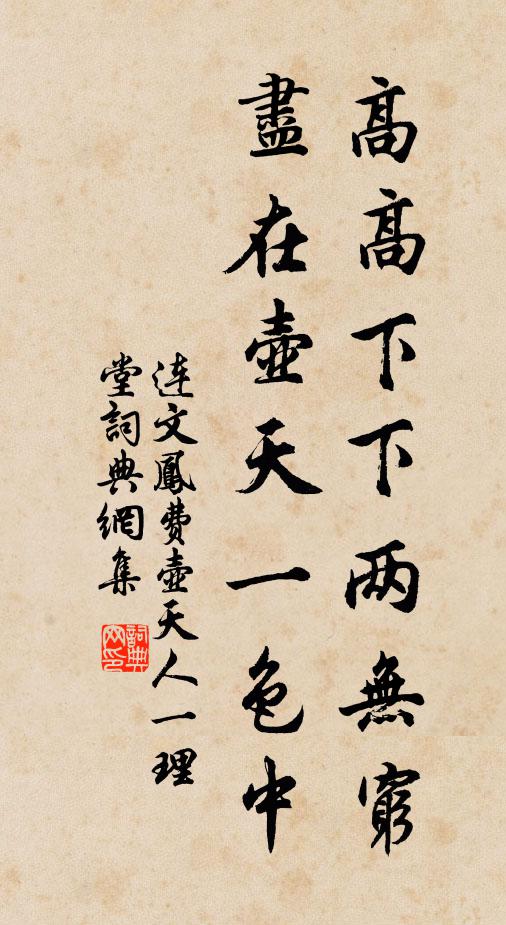 高高下下两無窮
盡在壺天一色中
連文鳳費壺天人一理
堂詞典網集
詞典
网印